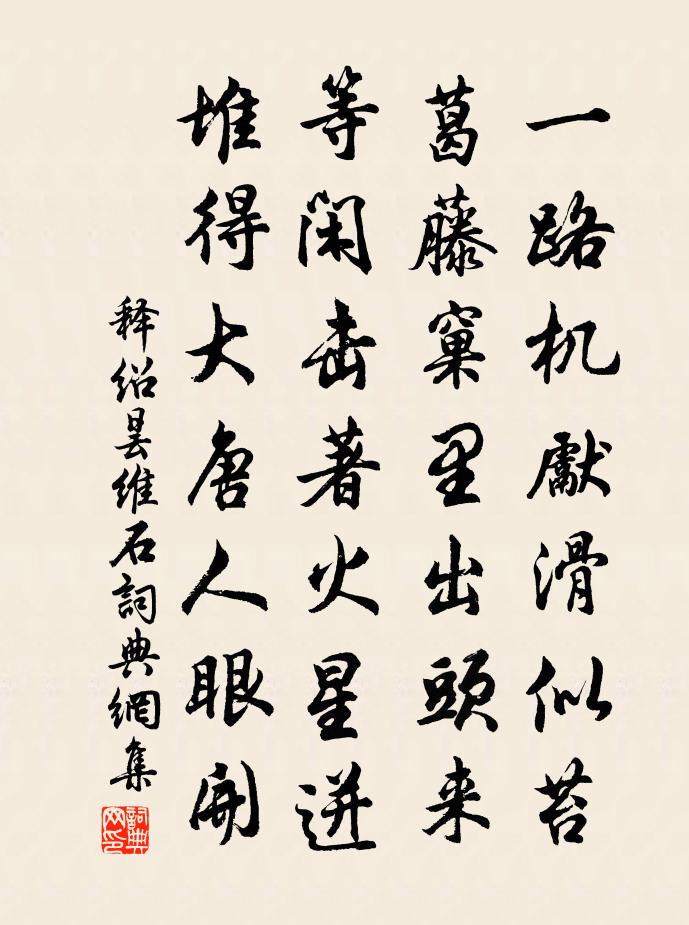 一路机獻滑似苔
葛藤窠里出頭来
等閑击著火星迸
堆得大唐人眼開
释绍昙维石詞典網集
詞典网印